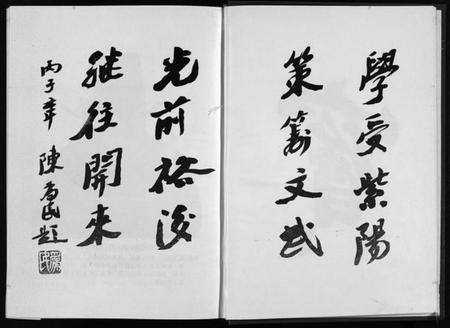 學受紫陽
策籌文武
光前裕後
继往開来
丙子年 陳 題